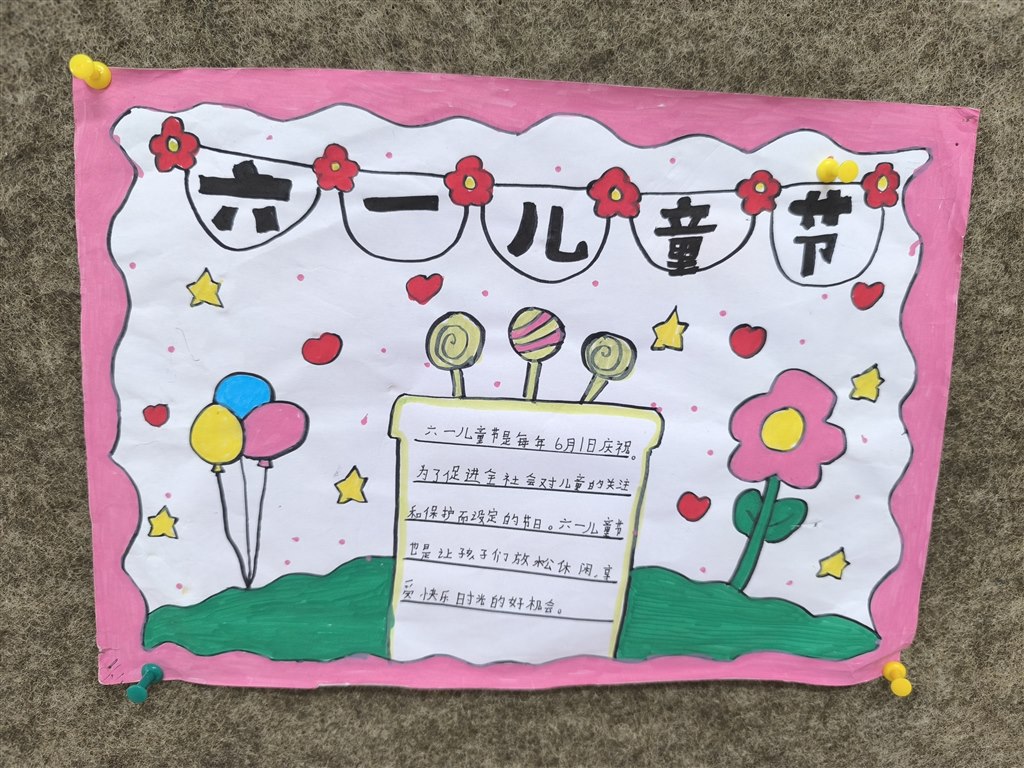 六一儿童节
六一儿童节是每年6月1日庆祝。
为了促进全社会对儿童的关注
和保护而设定的节日。六一儿童节
也是让孩子们放松休闲,享
受快乐时光的好机会。